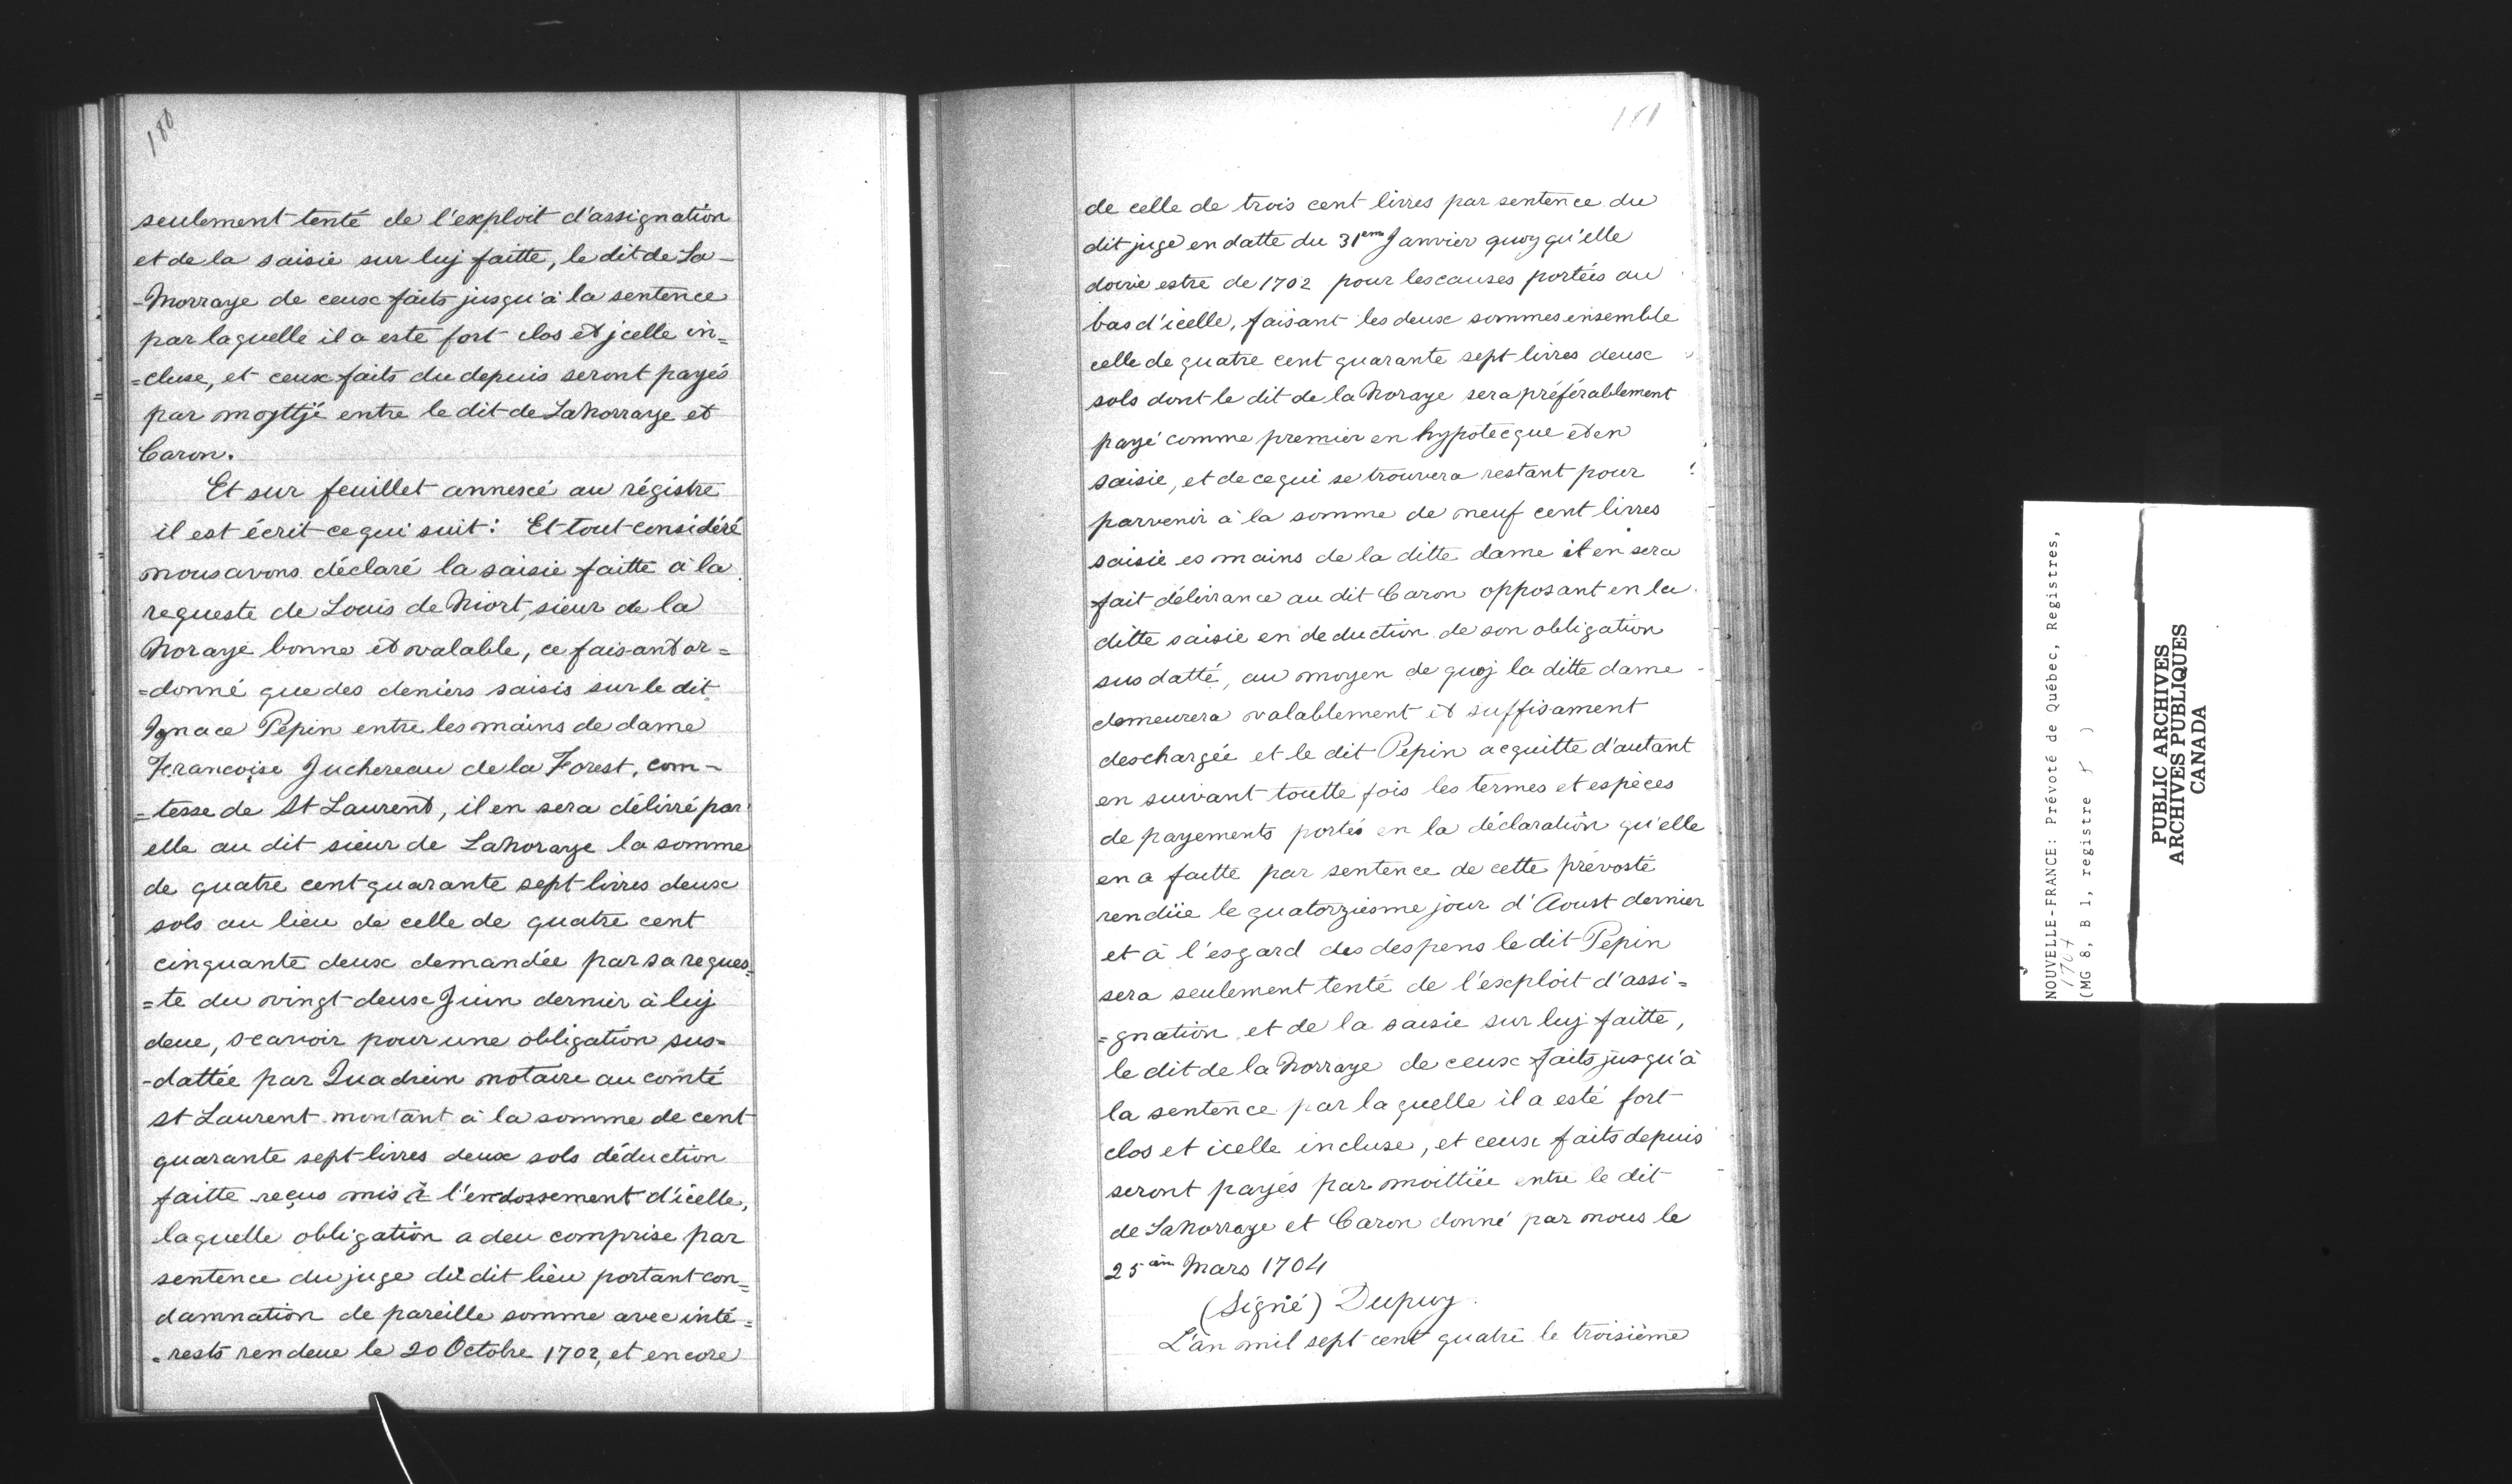 180
seulement tenté de l'exploit d'assignation
et de la saisie sur luj faitte, le dit de La-
-Norraye de ceux faits jusqu'à la sentence
par laquelle il a esté fort clos et jcelle in=
=cluse, et ceux faits du depuis seront payés
par moyttjé entre le dit de LaNorraye et
Caron.
Et sur feuillet annexé au régistre
il est écrit ce qui suit: Et tout considéré
nous avons déclaré la saisie faitte à la
requeste de Louis de Niort, sieur de la
Noraye bonne et valable, ce faisant or=
=donné que des deniers saisis sur le dit
Ignace Pepin entre les mains de dame
Francoise Juchereau de la Forest, com-
=tesse de St Laurent, il en sera délivré par
elle au dit sieur de LaNoraye la somme
de quatre cent quarante sept livres deux
sols au lieu de celle de quatre cent
cinquante deux demandée par sa reques=
=te du vingt deux Juin dernier à luj
deue, scavoir pour une obligation sus=
-dattée par Quadrin notaire au comté
St Laurent montant à la somme de cent
quarante sept livres deux sols déduction
faitte reçus mis à l'endossement d'icelle,
laquelle obligation a deu comprise par
sentence du juge du dit lieu portant con=
damnation de pareille somme avec inté=
=rests rendeue le 20 Octobre 1702, et encore
181
de celle de trois cent livres par sentence du
dit juge en datte du 31em Janvier quoy qu'elle
doive estre de 1702 pour les causes portées au
bas d'icelle, faisant les deux sommes ensemble
celle de quatre cent quarante sept livres deux
sols dont le dit de la Noraye sera préférablement
payé comme premier en hypotecque et en
saisie, et de ce qui se trouvera restant pour
parvenir à la somme de neuf cent livres
saisie es mains de la ditte dame il en sera
fait délivrance au dit Caron opposant en la
ditte saisie en deduction de son obligation
sus datté, au moyen de quoj la ditte dame
demeurera valablement et suffisament
deschargée et le dit Pepin acquitte d'autant
en suivant toutte fois les termes et espèces
de payements portés en la déclaration qu'elle
en a faitte par sentence de cette prevosté
rendüe le quatorziesme jour d'Aoust dernier
et à l'esgard des despens le dit Pepin
sera seulement tenté de l'exploit d'assi=
=gnation et de la saisie sur luj faitte,
le dit de la Norraye de ceux faits jusqu'à
la sentence par laquelle il a esté fort
clos et icelle incluse, et ceux faits depuis
seront payés par moittiée entre le dit
de LaNorraye et Caron donné par nous le
25em Mars 1704
(Signé) Dupuy.
L'an mil sept cent quatre le troisième
NOUVELLE-FRANCE: Prévoté de Québec, Registres,
1704
(MG 8, B 1, registre )
PUBLIC ARCHIVES
ARCHIVES PUBLIQUES
CANADA